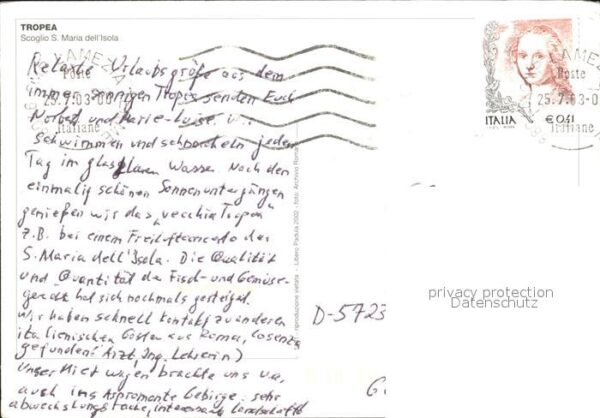 TROPEA
Scoglio S. Maria dell'Isola
LAMEZIA
Poste
25.7.03-00
Italiane
LAMEZIA
Poste
25.7.03-0
Italiane
ITALIA
€0,41
Relaxte Urlaubsgrüße aus dem
immer sonnigen Tropea senden Euch
Norbert und Marie-Luise. Wir
schwimmen und schnorcheln jeden
Tag im glasklaren Wasser. Nach den
einmalig schönen Sonnenuntergängen
genießen wir das "vecchia Tropea"
z.B. bei einem Freiluftconcerto der
S. Maria dell'Isola. Die Qualität
und Quantität der Fisch- und Gemüse-
gerichte hat sich nochmals gesteigert.
Wir haben schnell Kontakt zu anderen
italienischen Gästen aus Roma, Cosenza
gefunden (Arzt, Ing. Lehrerin)
Unser Mietwagen brachte uns u.a.
auch ins Aspromonte Gebirge. sehr
abwechslungsreiche, interessante Landschaft
riproduzione vietata - Libero Padula 2002 - foto: Archivio Romano
D-5723
privacy protection
Datenschutz